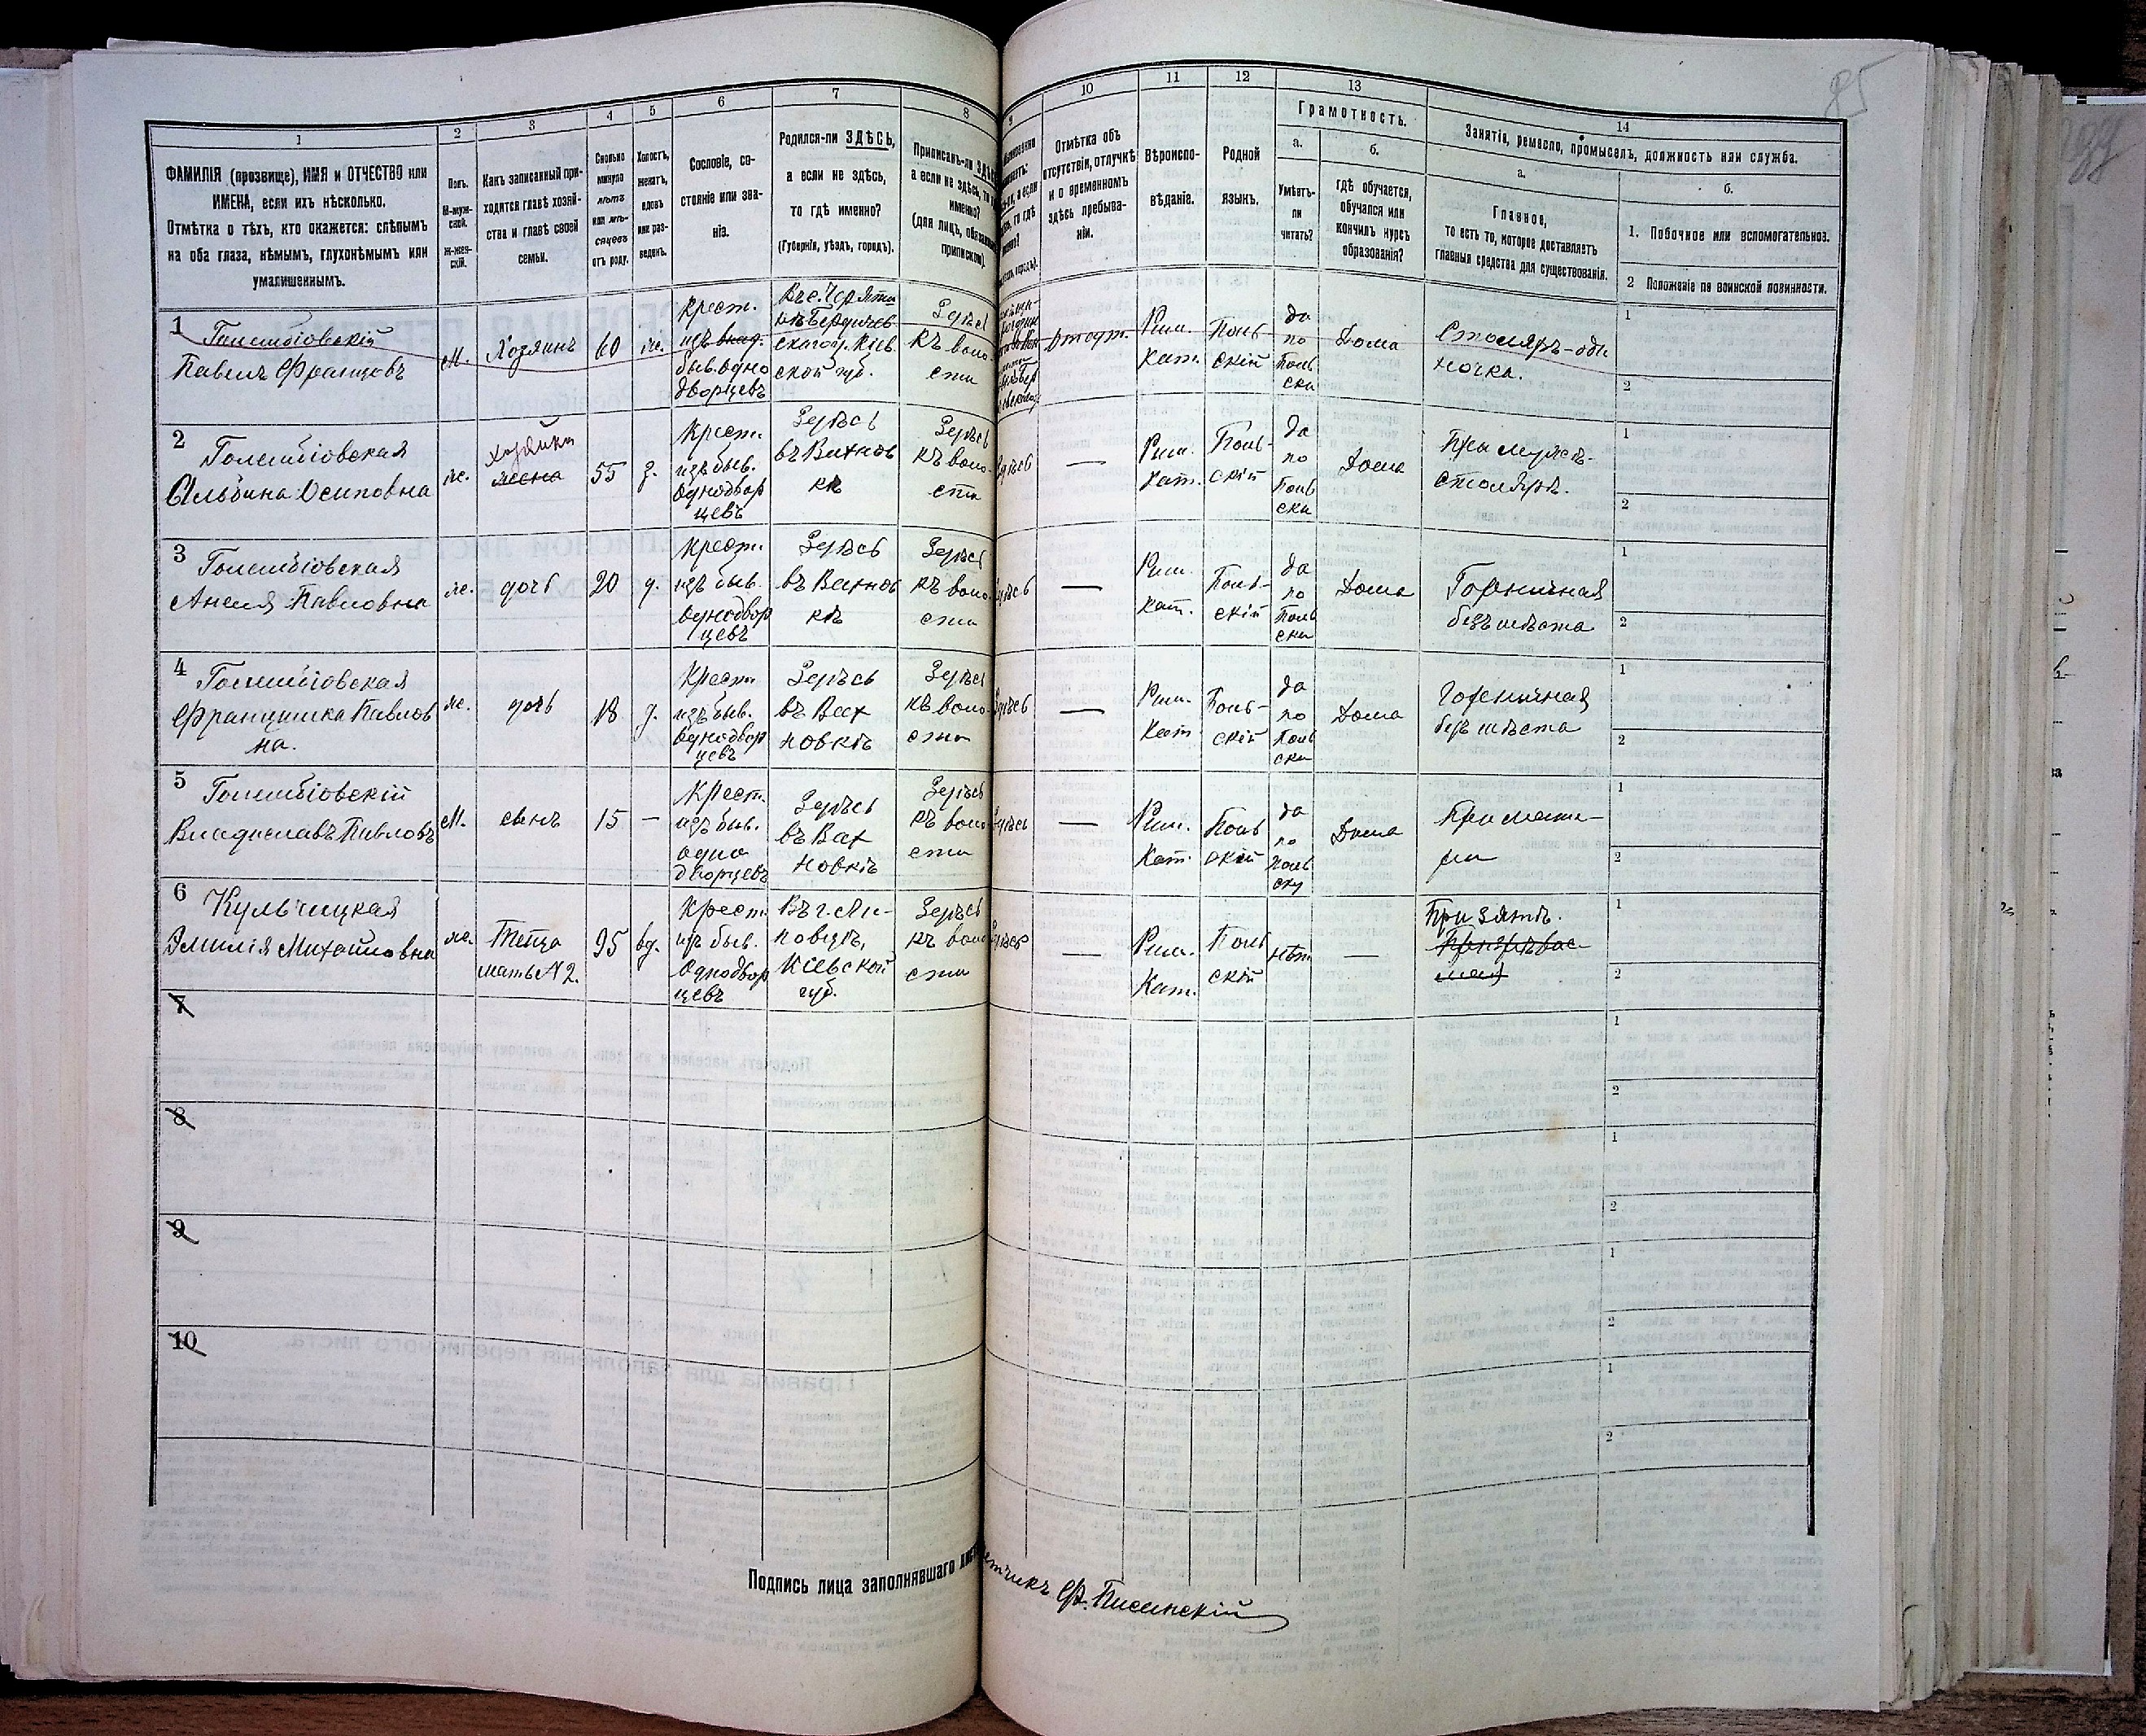 85
1
ФАМИЛІЯ (прозвище), ИМЯ и ОТЧЕСТВО или
ИМЕНА, если ихъ нѣсколько.
Отмѣтка о тѣхъ, кто окажется: слѣпымъ
на оба глаза, нѣмымъ, глухонѣмымъ или
умалишеннымъ.
2
Полъ.
М-муж-
ской.
Ж-жен-
скій.
3
Какъ записанный при-
ходится главѣ хозяй-
ства и главѣ своей
семьи.
4
Сколько
минуло
лѣтъ
или мѣ-
сяцевъ
отъ роду.
5
Холостъ,
женатъ,
вдовъ
или раз-
веденъ.
6
Сословіе, со-
стояніе или зва-
ніе.
7
Родился-ли ЗДѢСЬ,
а если не здѣсь,
то гдѣ именно?
(Губернія, уѣздъ, городъ).
8
Приписанъ-ли
а если не здѣсь,
именно?
(для лицъ,
припискою).
9
10
Отмѣтка объ
отсутствіи, отлучкѣ
и о временномъ
здѣсь пребыва-
ніи.
11
Вѣроиспо-
вѣданіе.
12
Родной
языкъ.
13
Грамотность.
а.
Умѣетъ-
ли
читать?
б.
гдѣ обучается,
обучался или
кончилъ курсъ
образованія?
14
Занятія, ремесло, промыселъ, должность или служба.
а.
Главное,
то есть то, которое доставляетъ
главныя средства для существованія.
б.
1. Побочное или вспомогательное.
2 Положеніе по воинской повинности.
1
Голембіовскій
Павелъ Францовъ
М.
Хозяинъ
60
ж.
Крест.
изъ
быв. одно
дворцевъ
Въ с. Черяти
нѣ Бердичев
ской губ.
Здѣсь
къ воло-
сти
отсут.
Рим.
Кат.
Поль
скій
да
по
Поль
ски
Дома
Столяръ-оди
ночка.
1
2
2
Голембіовская
Альбина Осиповна
ж.
хозяйка
жена
55
з.
Крест.
изъ быв.
Однодвор
цевъ
Здѣсь
въ Вахнов
кѣ
Здѣсь
къ воло-
сти
Здѣсь
—
Рим.
Кат.
Поль-
скій
да
по
Поль
ски
Дома
При мужѣ-
столярѣ.
1
2
3
Голембіовская
Анеля Павловна
ж.
дочь
20
д.
Крест.
изъ быв.
Однодвор
цевъ
Здѣсь
въ Вахнов
кѣ
Здѣсь
къ воло-
сти
Здѣсь
—
Рим.
Кат.
Поль-
скій
да
по
Поль
ски
Дома
Горничная
безъ мѣста
1
2
4
Голембіовская
Францишка Павлов
на.
ж.
дочь
18
д.
Крест.
изъ быв.
Однодвор
цевъ
Здѣсь
въ Вах
новкѣ
Здѣсь
къ воло-
сти
Здѣсь
—
Рим.
Кат.
Поль-
скій
да
по
Поль
ски
Дома
Горничная
безъ мѣста
1
2
5
Голембіовскій
Владиславъ Павловъ
М.
сынъ
15
—
Крест.
изъ быв.
одно
дворцевъ
Здѣсь
въ Вах
новкѣ
Здѣсь
къ воло-
сти
Здѣсь
—
Рим.
Кат.
Поль
скій
да
по
Поль
ску
Дома
При мате-
ри
1
2
6
Кульчицкая
Эмилія Михайловна
ж.
Теща
мать N 2.
95
вд.
Крест.
изъ быв.
Однодвор
цевъ
Въ г. Ли-
повцѣ,
Кіевской
губ.
Здѣсь
къ воло
сти
Здѣсь
—
Рим.
Кат.
Поль
скій
нѣт
—
При зятѣ.
1
2
7
1
2
8
1
2
9
1
2
10
1
2
Подпись лица заполнявшаго